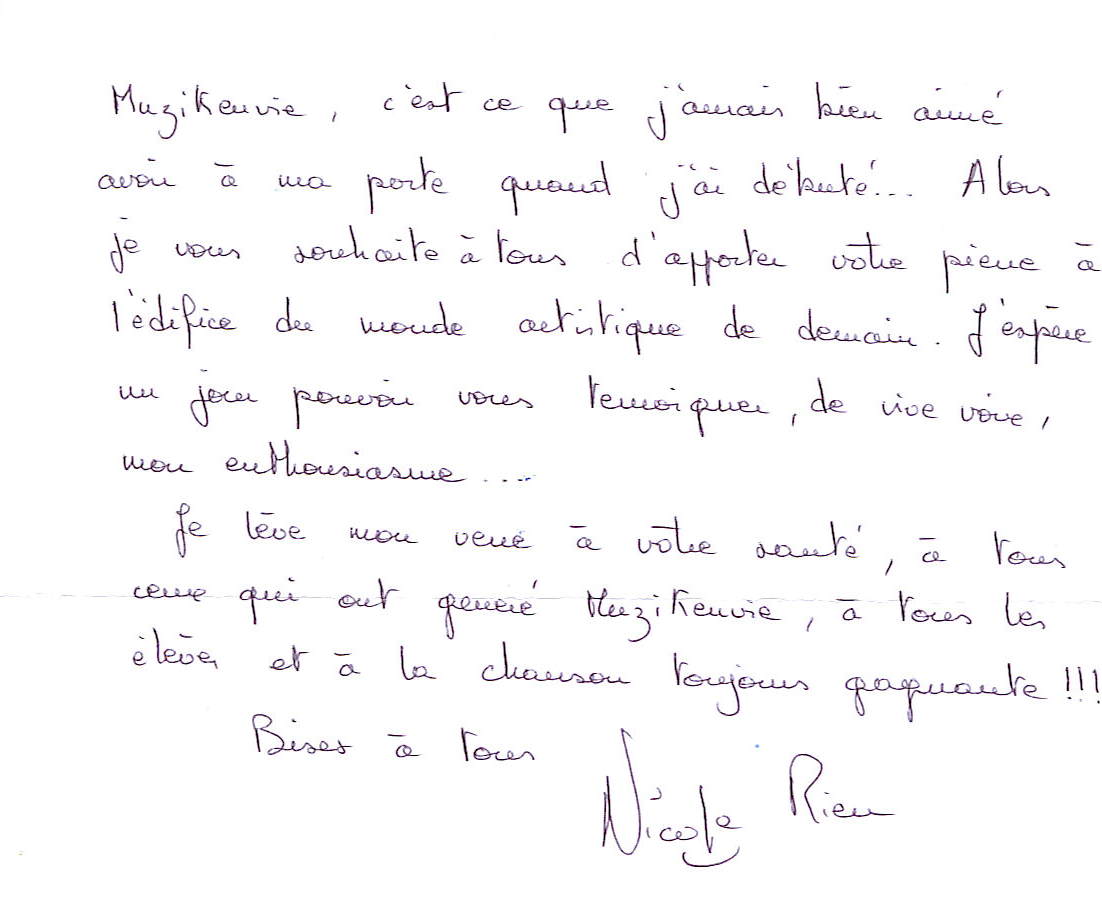 Muzikenvie, c'est ce que j'aurais bien aimé
avoir à ma porte quand j'ai débuté... Alors
je vous souhaite à tous d'apporter votre pierre à
l'édifice du monde artistique de demain. J'espère
un jour pouvoir vous témoigner, de vive voix,
mon enthousiasme....
Je lève mon verre à votre santé, à tous
ceux qui ont généré Muzikenvie, à tous les
élèves et à la chanson toujours gagnante !!!
Bises à tous
Nicole Rieu